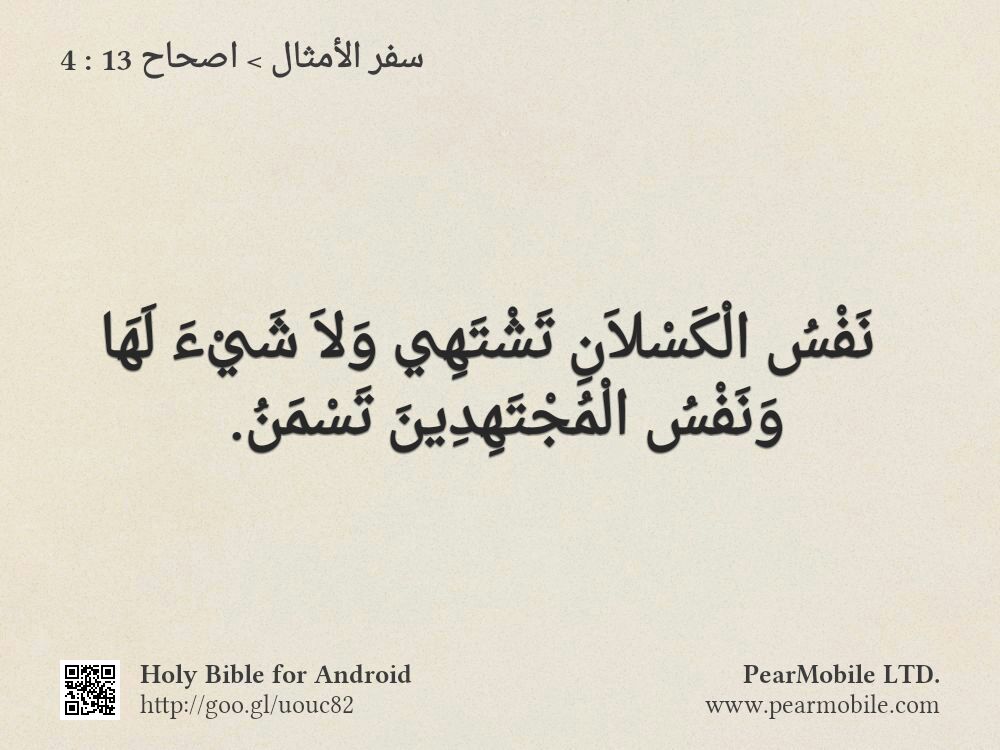 سفر الأمثال > اصحاح 13 : 4
نَفْسُ الْكَسْلاَنِ تَشْتَهِي وَلاَ شَيْءَ لَهَا
وَنَفْسُ الْمُجْتَهِدِينَ تَسْمَنُ.
Holy Bible for Android
http://goo.gl/uouc82
PearMobile LTD.
www.pearmobile.com